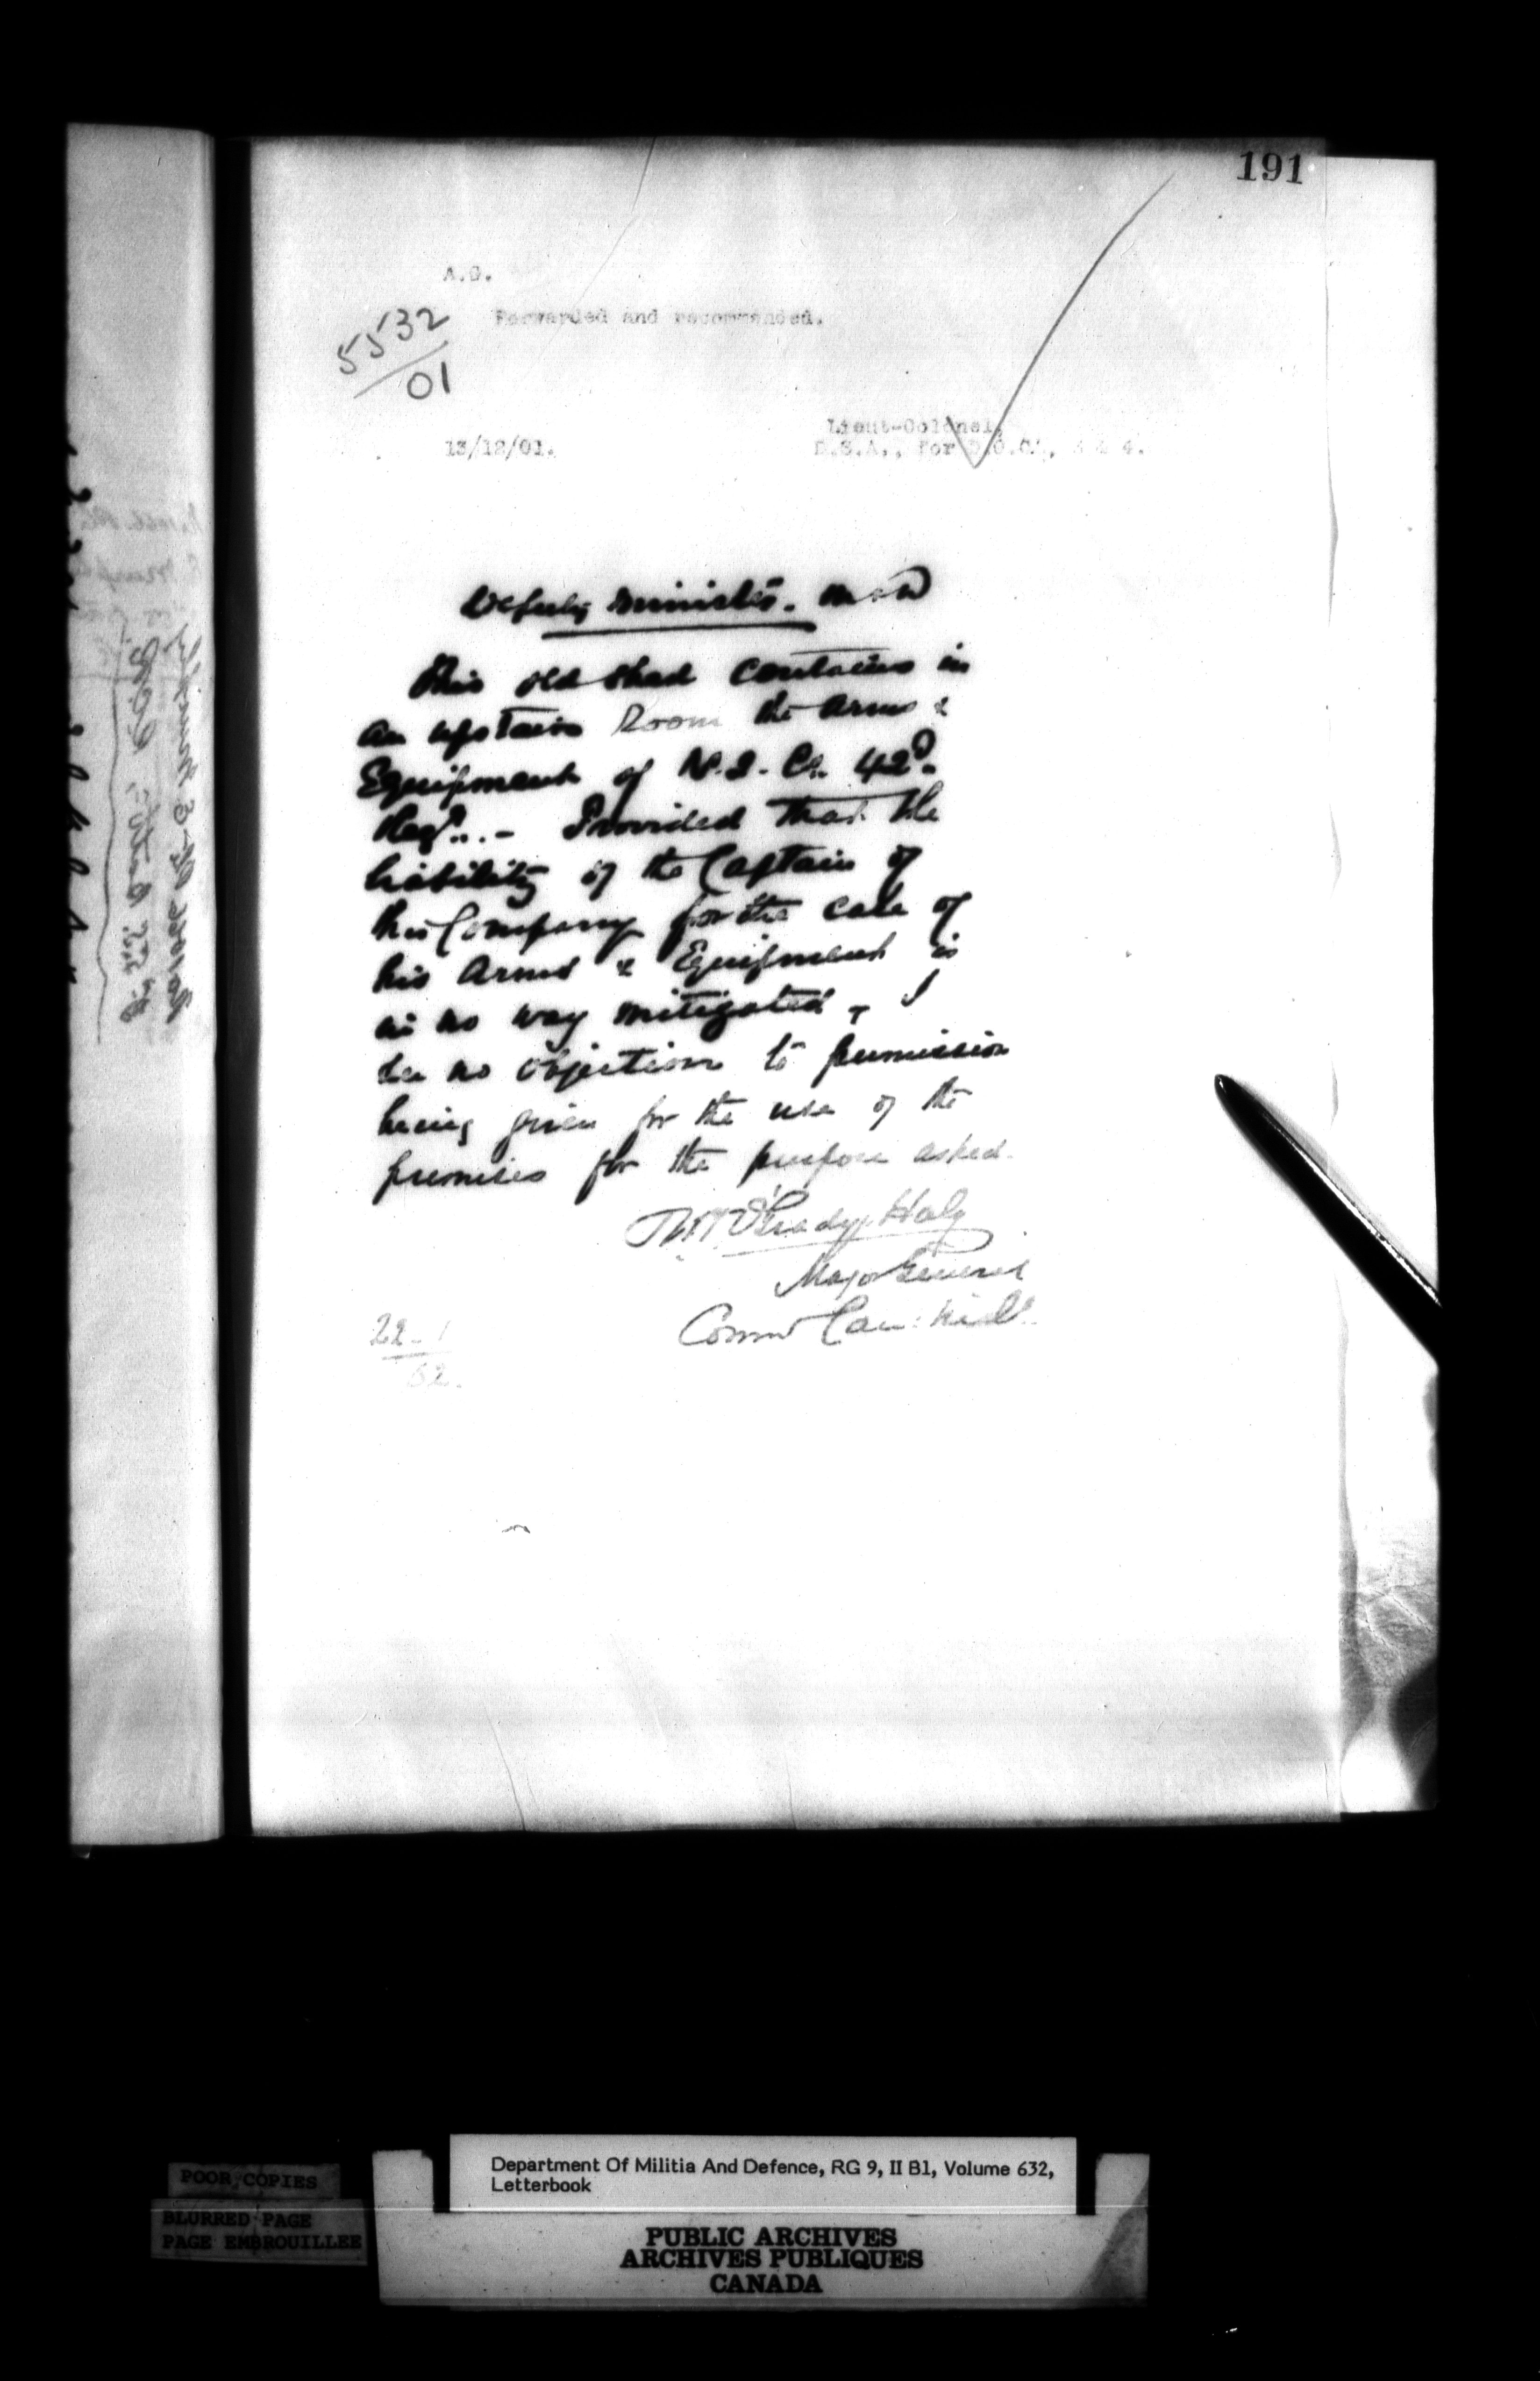 191
A.G.
Forwarded and recommended.
5532
/01
Lieut-Colonel,
13/12/01.
D.S.A., for D.O.C., 3 & 4.
Deputy Minister. M & D
This old shed contains in
an upstairs Room the arms &
Equipment of No. 2. Co. 42d.
Regt. - Provided that the
liability of the Captain of
this Company for the care of
his Arms & Equipment is
in no way mitigated, I
see no objection to permission
being given for the use of the
premises for the purpose asked.
O'Grady Haly
Major General
Comd Can: Mil:
22-1
02.
POOR COPIES
BLURRED PAGE
PAGE EMBROUILLEE
Department Of Militia And Defence, RG 9, II B1, Volume 632,
Letterbook
PUBLIC ARCHIVES
ARCHIVES PUBLIQUES
CANADA